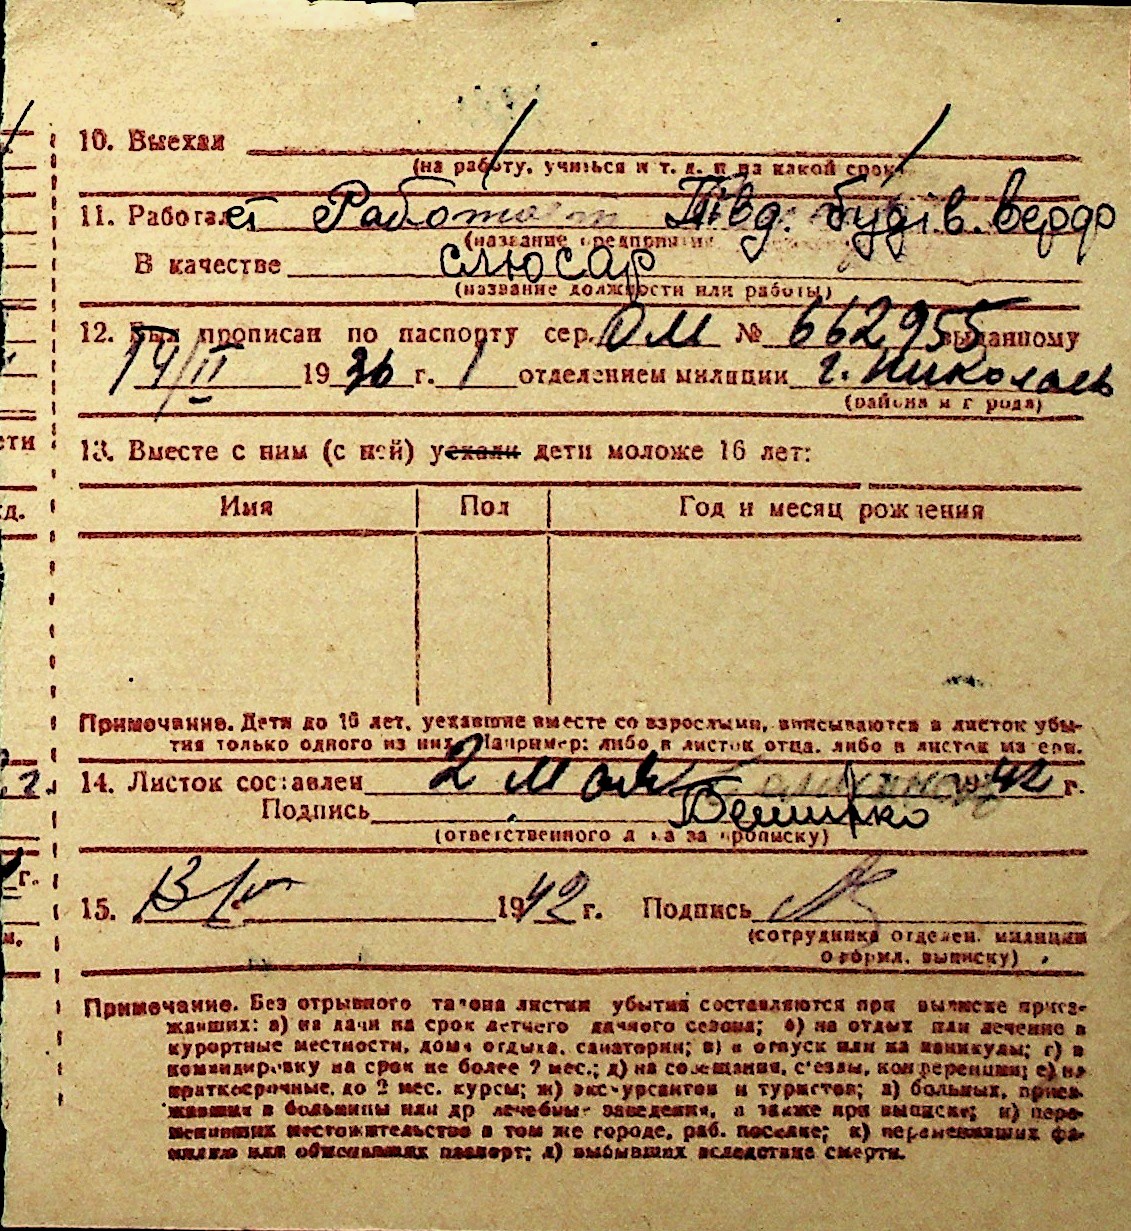 10. Выехал
(на работу, учиться и т. д. и на какой срок)
11. Работает Работает Півд. будів. верф
(название предприятия
В качестве слюсар
(название должности или работы)
12. Был прописан по паспорту сер. ОМ № 662955 выданному
14/II 1936 г. 1 отделением милиции г. Николаев
(района и города)
13. Вместе с ним (с ней) уехали дети моложе 16 лет:
Имя Пол Год и месяц рождения
Примечание. Дети до 16 лет, уехавшие вместе со взрослыми, вписываются в листок убы-
тия только одного из них. Например: либо в листок отца, либо в листок матери.
14. Листок составлен 2 мая 1942 г.
Подпись
(ответственного лица за прописку)
15. 1942 г. Подпись
(сотрудника отделен. милиции
оформл. выписку)
Примечание. Без отрывного талона листки убытия составляются при выписке приез-
жавших: а) на дачи на срок летнего дачного сезона; б) на отдых или лечение в
курортные местности, дома отдыха, санатории; в) в отпуск или на каникулы; г) в
командировку на срок не более 2 мес.; д) на совещания, с'езды, конференции; е) на
краткосрочные, до 2 мес. курсы; ж) экскурсантов и туристов; з) больных, приез-
жавших в больницы или др лечебные заведения, а также при выписке; и) пере-
менивших местожительство в том же городе, раб. поселке; к) переменивших фа-
милию или обменявших паспорт; л) выбывших вследствие смерти.